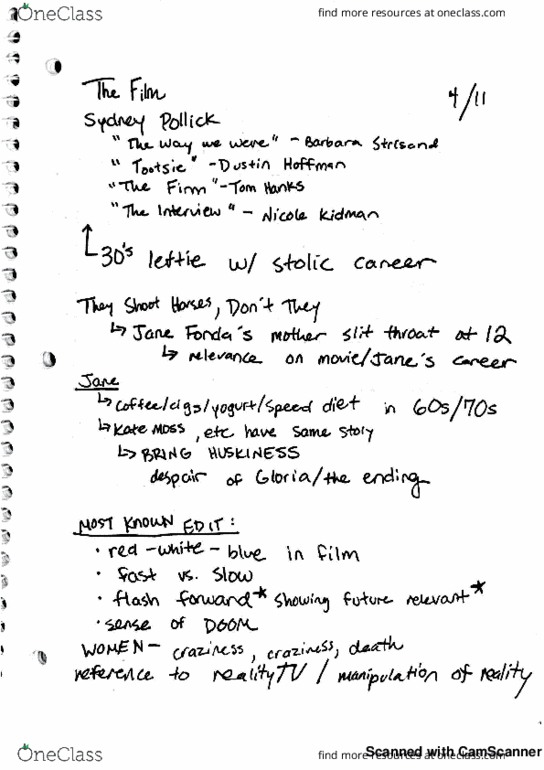 OneClass
find more resources at oneclass.com
The Film
4/11
Sydney Pollick
"The way we were" - Barbara Strisand
"Tootsie" - Dustin Hoffman
"The Firm" - Tom Hanks
"The Interview" - Nicole Kidman
30's leftie w/ stolic career
They Shoot Horses, Don't They
↳ Jane Fonda's mother slit throat at 12
↳ relevance on movie/Jane's career
Jane
↳ coffee/cigs/yogurt/speed diet in 60s/70s
↳ Kate Moss, etc have same story
↳ BRING HUSKINESS
despair of Gloria/the ending
MOST KNOWN EDIT:
• red-white-blue in film
• fast vs. slow
• flash forward* showing future relevant*
• sense of DOOM
WOMEN - craziness, craziness, death
reference to reality TV / manipulation of reality
OneClass
find more resources at oneclass.com
Scanned with CamScanner